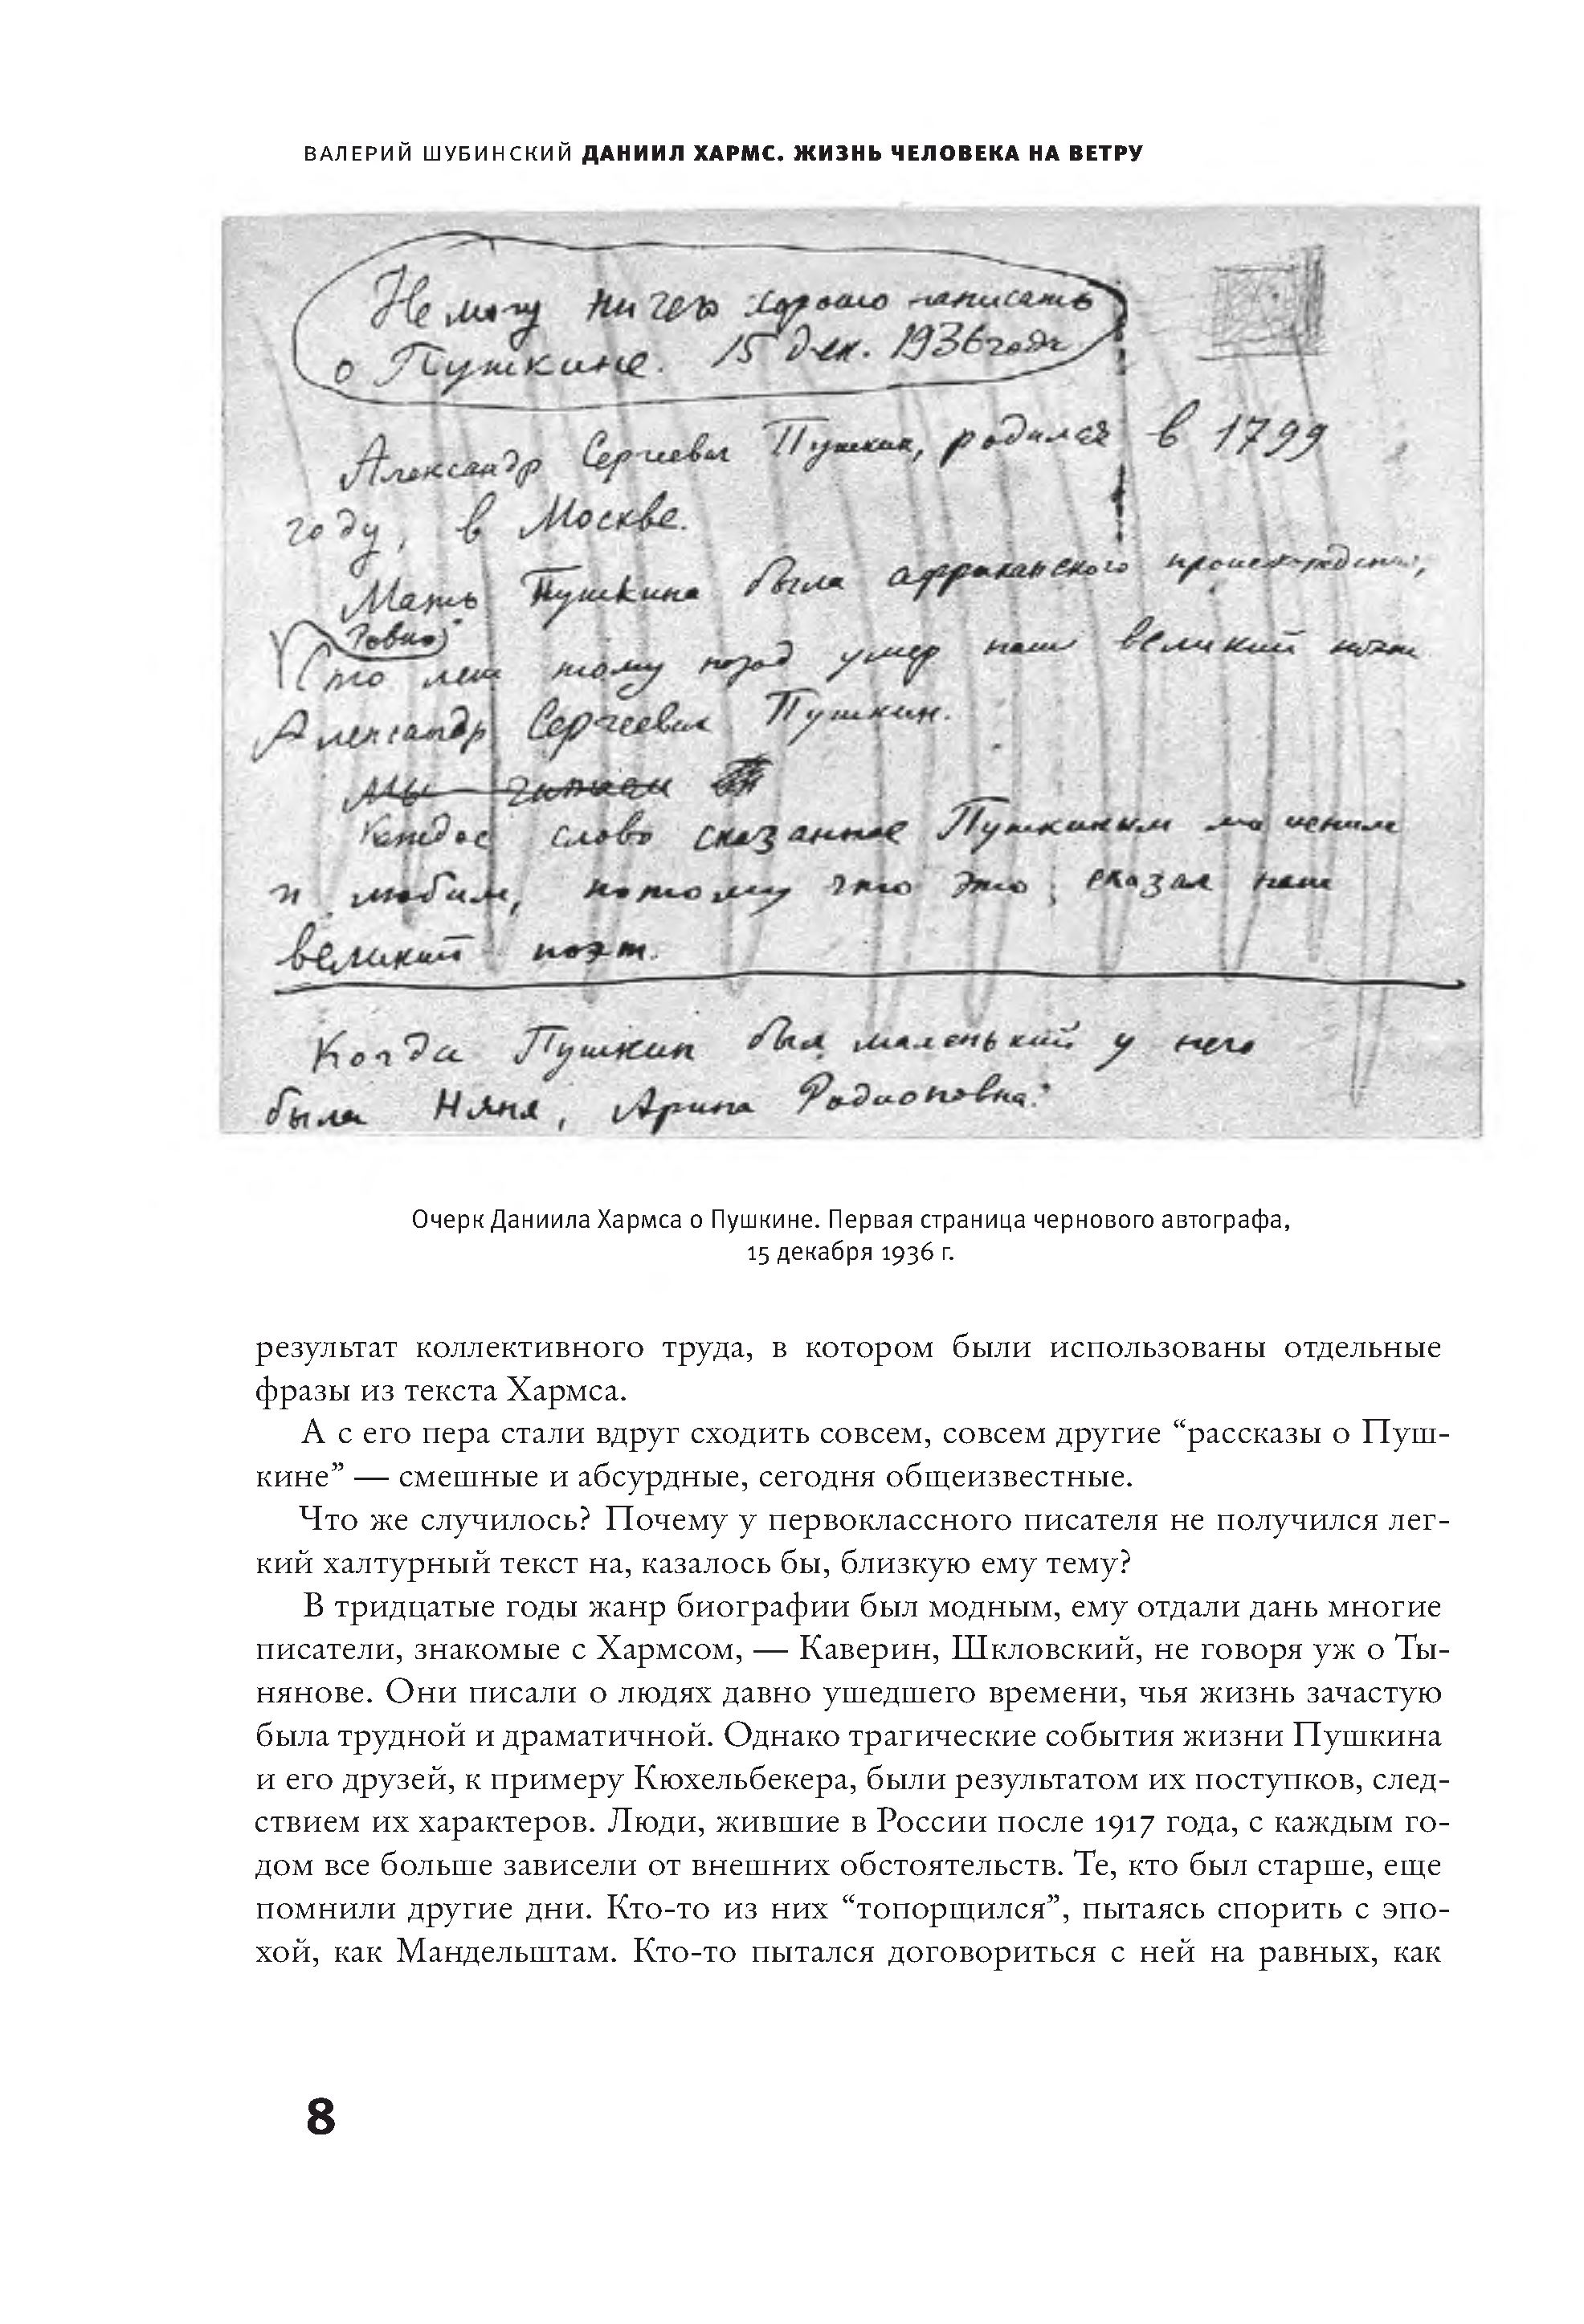 ВАЛЕРИЙ ШУБИНСКИЙ ДАНИИЛ ХАРМС. ЖИЗНЬ ЧЕЛОВЕКА НА ВЕТРУ
Не могу ничего хорошо написать
о Пушкине. 15 дек. 1936 года
Александр Сергеевич Пушкин, родился в 1799
году, в Москве.
Мать Пушкина была африканского происхождения,
Говно
Сто лет тому назад умер наш великий поэт
Александр Сергеевич Пушкин.
Мы читаем
Каждое слово сказанное Пушкиным мы ценим
и любим, потому что это сказал наш
великий поэт.
Когда Пушкин был маленький у него
была Няня, Арина Родионовна.
Очерк Даниила Хармса о Пушкине. Первая страница чернового автографа,
15 декабря 1936 г.
результат коллективного труда, в котором были использованы отдельные
фразы из текста Хармса.
А с его пера стали вдруг сходить совсем, совсем другие “рассказы о Пуш-
кине” — смешные и абсурдные, сегодня общеизвестные.
Что же случилось? Почему у первоклассного писателя не получился лег-
кий халтурный текст на, казалось бы, близкую ему тему?
В тридцатые годы жанр биографии был модным, ему отдали дань многие
писатели, знакомые с Хармсом, — Каверин, Шкловский, не говоря уж о Ты-
нянове. Они писали о людях давно ушедшего времени, чья жизнь зачастую
была трудной и драматичной. Однако трагические события жизни Пушкина
и его друзей, к примеру Кюхельбекера, были результатом их поступков, след-
ствием их характеров. Люди, жившие в России после 1917 года, с каждым го-
дом все больше зависели от внешних обстоятельств. Те, кто был старше, еще
помнили другие дни. Кто-то из них “топорщился”, пытаясь спорить с эпо-
хой, как Мандельштам. Кто-то пытался договориться с ней на равных, как
8